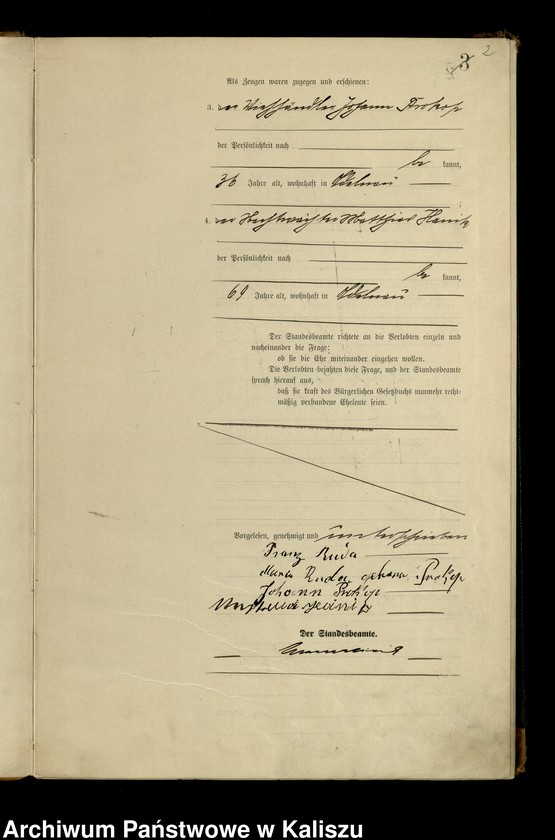 3 2
Als Zeugen waren zugegen und erschienen:
3. der Viehhändler Johann Prokop
der Persönlichkeit nach
be kannt,
36 Jahre alt, wohnhaft in Adelnau
4. der Nachtwächter Matthias Hanik
der Persönlichkeit nach
be kannt,
69 Jahre alt, wohnhaft in Adelnau
Der Standesbeamte richtete an die Verlobten einzeln und
nacheinander die Frage:
ob sie die Ehe miteinander eingehen wollen.
Die Verlobten bejahten diese Frage, und der Standesbeamte
sprach hierauf aus,
daß sie kraft des Bürgerlichen Gesetzbuchs nunmehr recht-
mäßig verbundene Eheleute seien.
Vorgelesen, genehmigt und unterschrieben
Franz Ruda
Maria Ruda geborene Prokop
Johann Prokop
Der Standesbeamte.
Archiwum Państwowe w Kaliszu